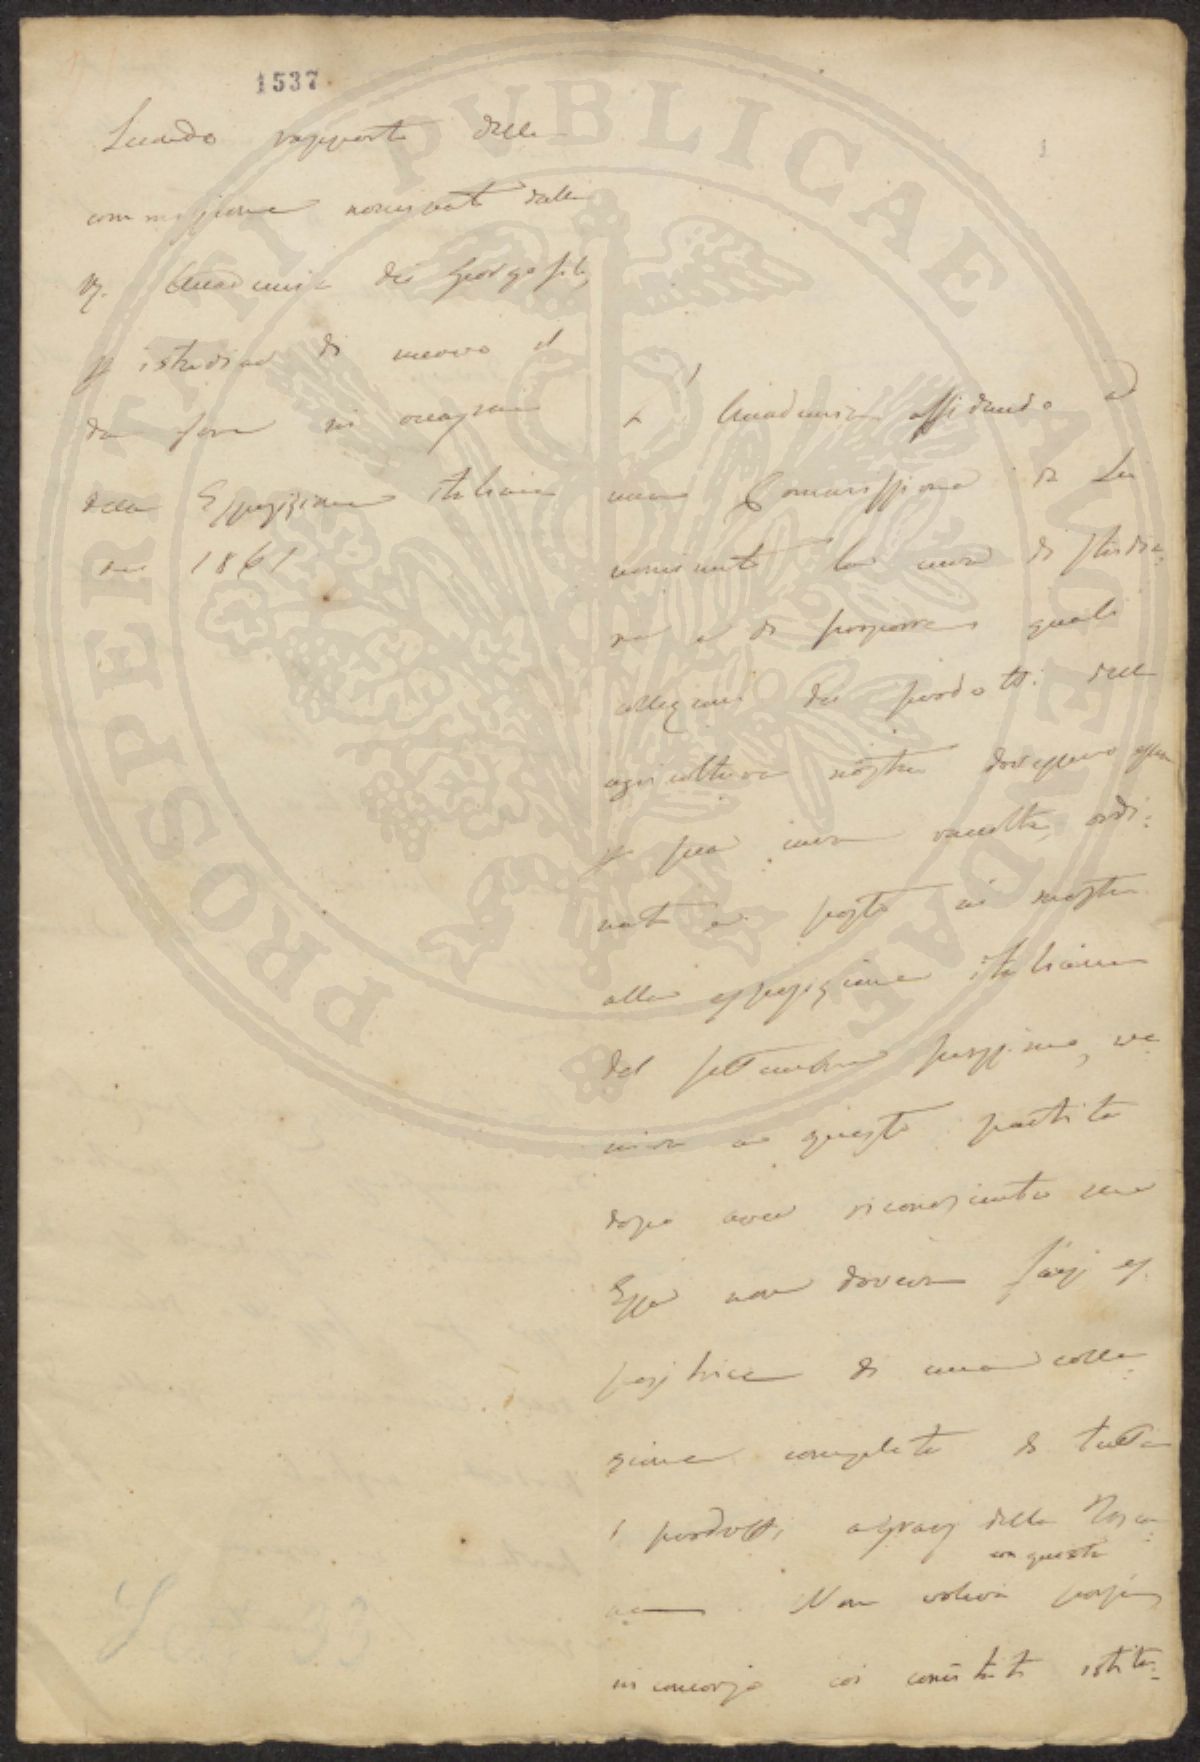 1537
Secondo rapporto della
commissione nominata dalla
R. Accademia dei Georgofili
p istudiare di nuovo il
da farsi in occasione
della Esposizione italiana
del 1861
1
L' Accademia affidando ad
una Commissione da Lei
nominata la cura di studia:
re e di proporre quali
collezioni dei prodotti della
agricoltura nostra dovessero esser
p sua cura raccolte, ordi:
nate e poste in mostra
alla esposizione italiana
del settembre prossimo, ve:
niva a questo partito
dopo aver riconosciuto che
Essa non doveva farsi es:
positrice di una colle:
zione completa di tutti
i prodotti agrarj della Tosca:
na. Non voleva con questo porsi
in concorso coi comitati istitu:
PROSPERITATI PVBLICAE AVGENDAE